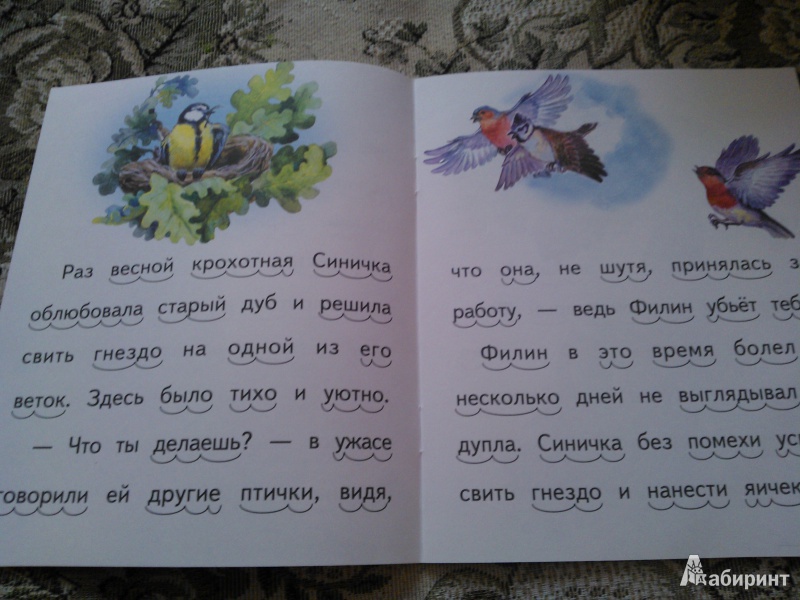 Раз весной крохотная Синичка
облюбовала старый дуб и решила
свить гнездо на одной из его
веток. Здесь было тихо и уютно.
— Что ты делаешь? — в ужасе
говорили ей другие птички, видя,
что она, не шутя, принялась з
работу, — ведь Филин убьёт теб
Филин в это время болел
несколько дней не выглядывал
дупла. Синичка без помехи ус
свить гнездо и нанести яичек
Лабиринт